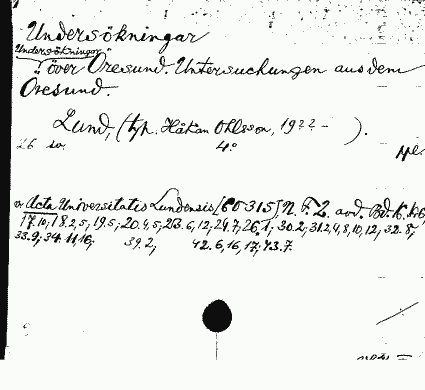 Undersökningar
Undersökningar
över Öresund. Untersuchungen aus dem
Öresund.
Lund, (typ. Håkan Ohlsson, 1922 - ).
26 4:o
or Acta Universitatis Lundensis [60315] N. F. 2. avd. Bd.
17.10; 18.2,5; 19.5; 20.4,5; 23.6,12; 24.7; 26.1; 30.2; 31.2,4,8,10,12; 32.8;
33.9; 34.11,16; 39.2; 42.6,16,17; 43.7.